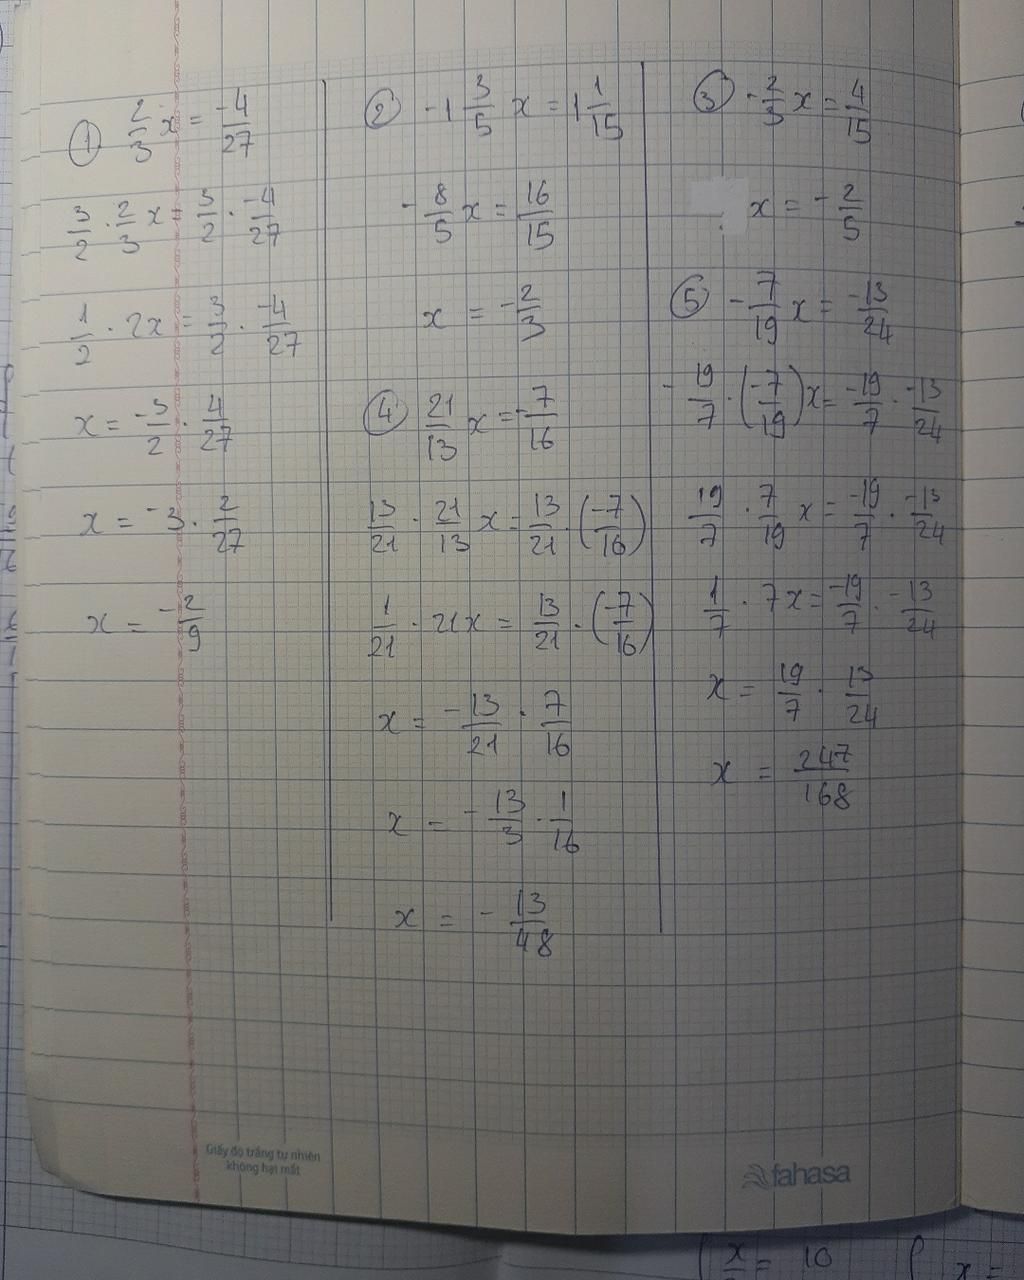 ① 2/3 x = -4/27
3/2 · 2/3 x = 3/2 · -4/27
1/2 · 2x = 3/2 · -4/27
x = -3/2 · 4/27
x = -3 · 2/27
x = -2/9
② -1 3/5 x = 1 1/15
-8/5 x = 16/15
x = -2/3
④ 21/13 x = -7/16
13/21 · 21/13 x = 13/21 · (-7/16)
1/21 · 21x = 13/21 · (-7/16)
x = -13/21 · 7/16
x = -13/3 · 1/16
x = -13/48
③ -2/3 x = 4/15
x = -2/5
⑤ -7/19 x = -13/24
-19/7 · (-7/19) x = -19/7 · -13/24
19/7 · 7/19 x = -19/7 · -13/24
1/7 · 7x = -19/7 · -13/24
x = 19/7 · 13/24
x = 247/168
Giấy độ trắng tự nhiên
không hại mắt
fahasa